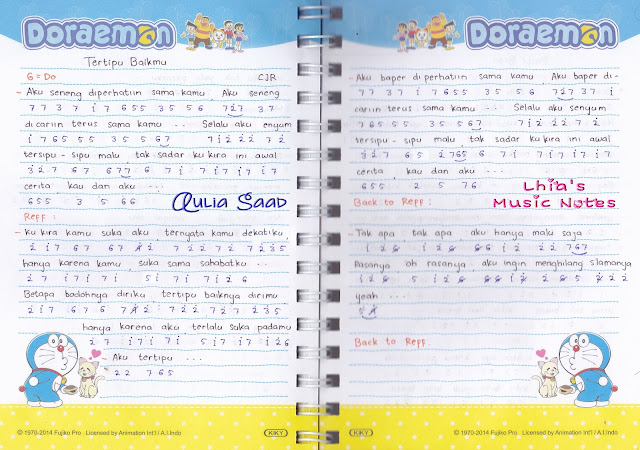 Doraemon
Tertipu Baikmu
G = Do CJR
- Aku seneng diperhatiin sama kamu Aku seneng
7 7 3 7 i 7 6 5 5 3 5 5 6 7 2 7 3 7
di cariin terus sama kamu ... Selalu aku enyum
i 7 6 5 5 3 5 5 6 7 7 i 2 2 7 2
tersipu - sipu malu tak sadar ku kira ini awal
3 2 7 6 7 6 7 7 6 7 i 7 i 7 i 7 i 7
cerita kau dan aku ...
6 5 5 3 5 6 6
Aulia Saad
Reff :
- Ku kira kamu suka aku ternyata kamu dekatiku
hanya karena kamu suka sama sahabatku ...
2 7 i 7 i 7 i 5 i 7 i 2 6
Betapa bodohnya diriku tertipu baiknya dirimu
hanya karena aku terlalu suka padamu
2 7 i 7 i 7 i 5 i 7 i 2 6
- Aku tertipu ...
2 2 7 6 5
© 1970-2014 Fujiko Pro - Licensed by Animation Int'l / A.I.Indo
KIKY
Doraemon
- Aku baper diperhatiin sama kamu Aku baper di-
7 7 3 7 i 7 6 5 5 3 5 5 6 7 2 7 3 7 i
cariin terus sama kamu ... Selalu aku senyum
7 6 5 5 3 5 5 6 7 7 i 2 2 7 2
tersipu - sipu malu tak sadar ku kira ini awal
3 2 7 6 5 2 7 6 5 6 7 i 7 i 7 i 7 i 7
cerita kau dan aku ...
6 5 5 2 5 7 6
Lhia's
Music Notes
Back to Reff :
- Tak apa tak apa aku hanya malu saja
Rasanya oh rasanya aku ingin menghilang slamanya
yeah ...
Back to Reff
© 1970-2014 Fujiko Pro - Licensed by Animation Int'l / A.I.Indo
KIKY